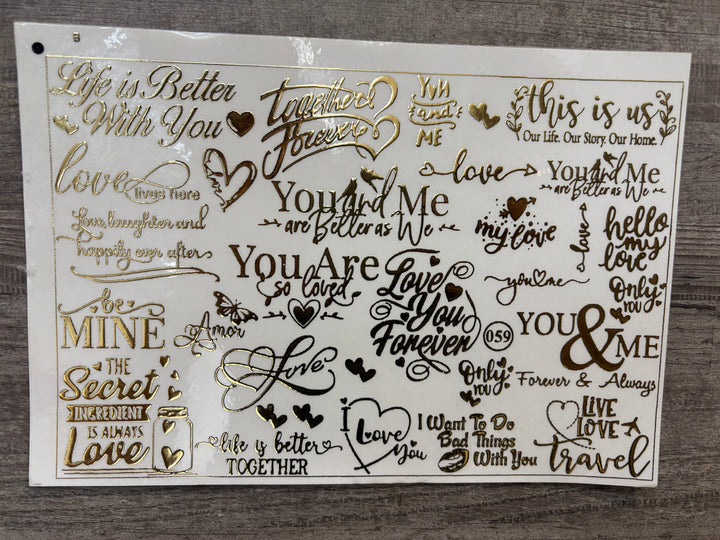 B
Life is Better
With You
together
Forever
You
and
ME
this is us
Our Life. Our Story. Our Home.
love
lives here
love
love
You and Me
are Better as We
You and Me
are Better as We
my love
love
hello
my
love
Love, laughter and
happily ever after
You Are
so loved
Love
You
Forever
you me
Only
YOU
be
MINE
Amor
059
YOU & ME
Forever & Always
THE
Secret
INGREDIENT
IS ALWAYS
Love
Love
Only
YOU
life is better
TOGETHER
I
Love
You
I Want To Do
Bad Things
With You
LIVE
LOVE
travel